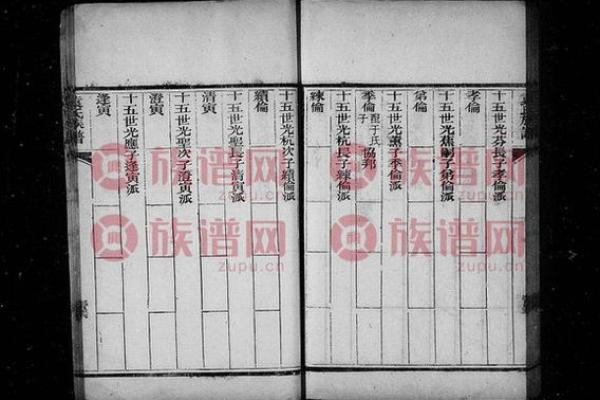 十五世光芬長子孝倫派
孝倫
十五世光蕉嗣子第倫派
第倫
十五世光薰子季倫派
季倫 配于氏 子 協邦
十五世光杭長子鍊倫派
鍊倫
十五世光杭次子績倫派
績倫
十五世光聖長子清寅派
清寅
十五世光聖次子澄寅派
澄寅
十五世光應子逢寅派
逢寅
氏族譜
族谱网
zupu.cn
族谱网
zupu.cn
族谱网
zupu.cn
族谱网
zupu.cn